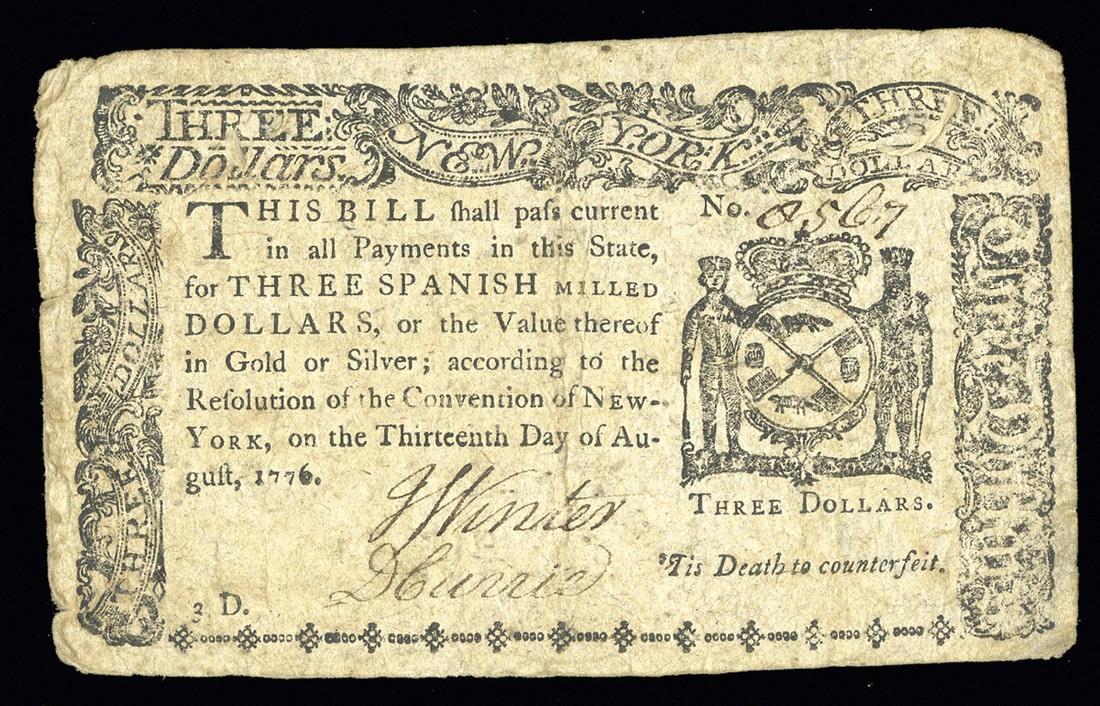 THREE:
Dollars.
NEW:
YORK:
THREE:
DOLLAR
THIS BILL ſhall paſs current
in all Payments in this State,
for THREE SPANISH MILLED
DOLLARS, or the Value thereof
in Gold or Silver; according to the
Reſolution of the Convention of NEW-
YORK, on the Thirteenth Day of Au-
guſt, 1776.
No. 8567
THREE DOLLARS.
'Tis Death to counterfeit.
J Winter
D Currie
3 D.
THREE
DOLLARS